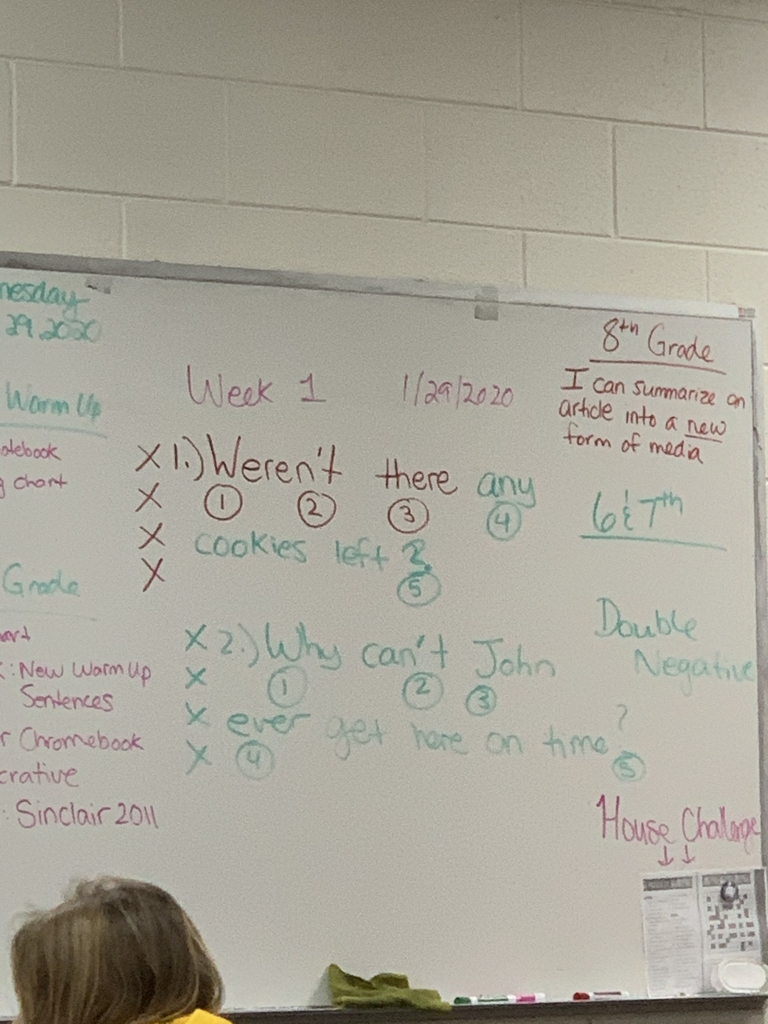 nesday
29.2020
Warm Up
otebook
g chart
Grade
art
: New Warm Up
Sentences
r Chromebook
crative
: Sinclair 2011
Week 1 1/29/2020
X 1.) Weren't there any
X ① ② ③ ④
X cookies left ?
X ⑤
X 2.) Why can't John
X ① ② ③
X ever get here on time ?
X ④ ⑤
8th Grade
I can summarize an
article into a new
form of media
6 & 7th
Double
Negative
House Challenge
↓ ↓